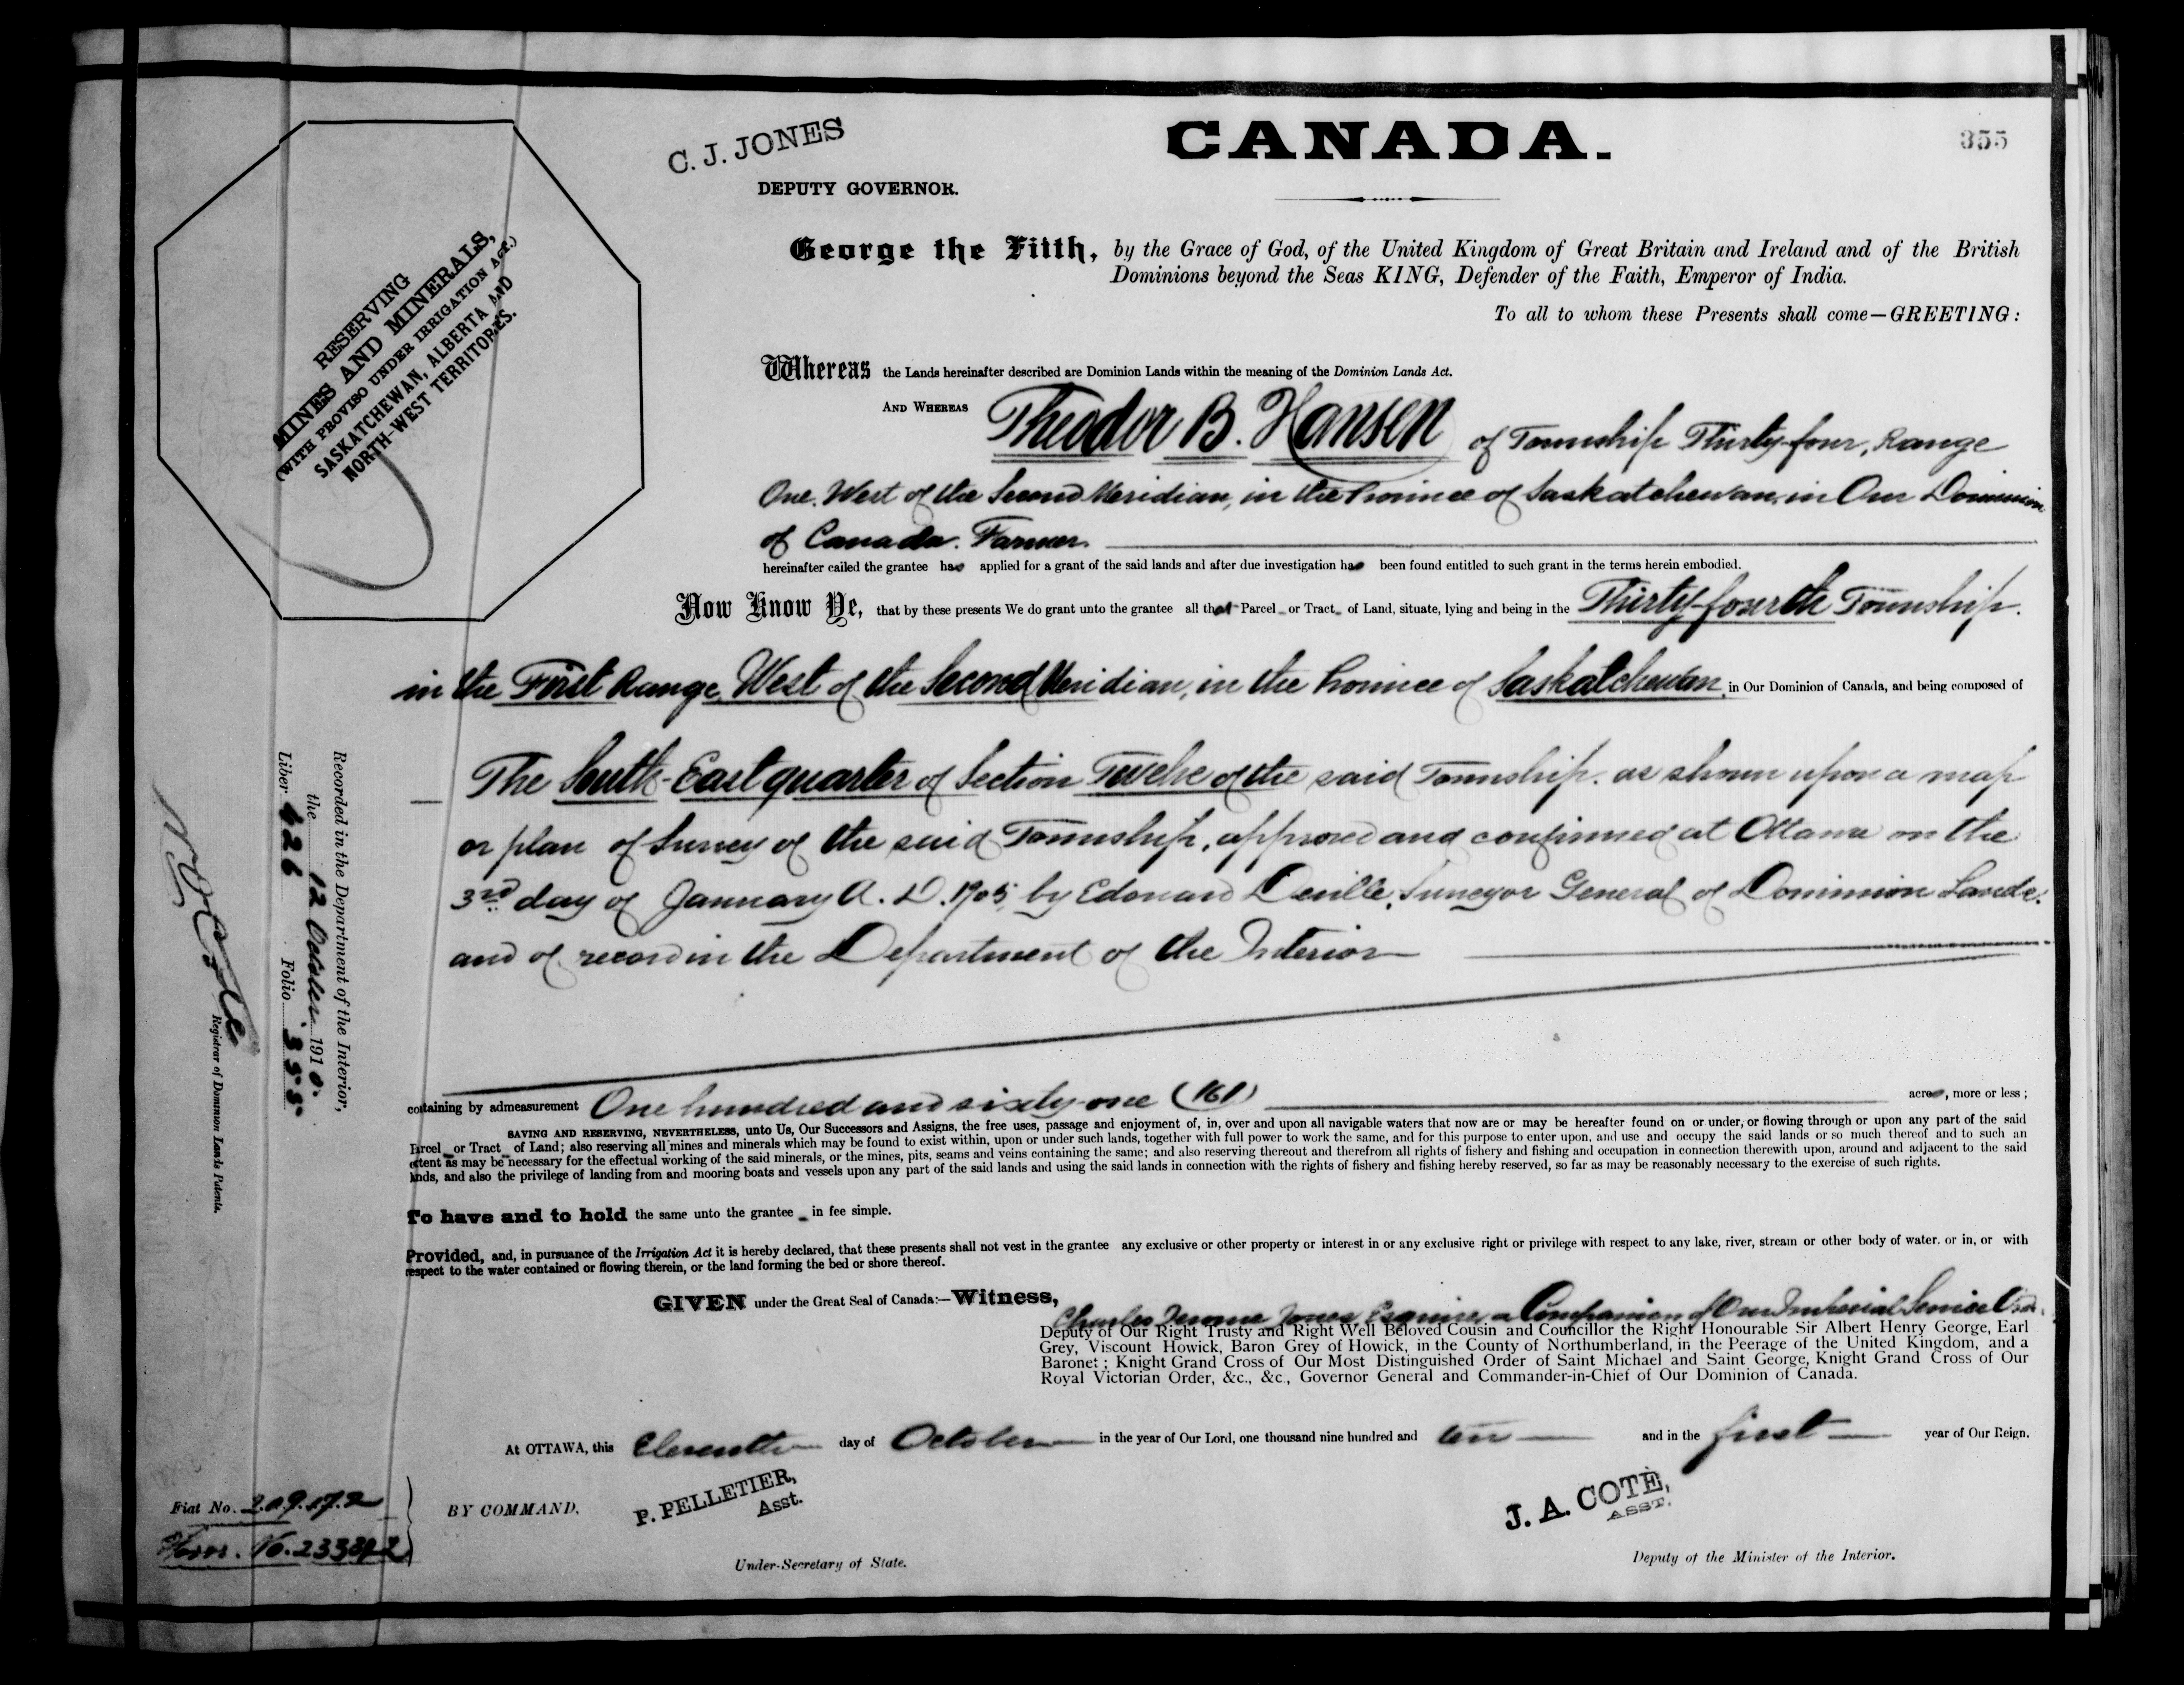 355
C. J. JONES
CANADA.
DEPUTY GOVERNOR.
George the Fifth, by the Grace of God, of the United Kingdom of Great Britain and Ireland and of the British
Dominions beyond the Seas KING, Defender of the Faith, Emperor of India.
To all to whom these Presents shall come—GREETING:
RESERVING
MINES AND MINERALS,
(WITH PROVISO UNDER IRRIGATION ACT.)
SASKATCHEWAN, ALBERTA AND
NORTH-WEST TERRITORIES.
Whereas the Lands hereinafter described are Dominion Lands within the meaning of the Dominion Lands Act.
AND WHEREAS Theodor B. Hansen of Township Thirty-four, Range
One, West of the Second Meridian, in the Province of Saskatchewan, in Our Dominion
of Canada. Farmer.
hereinafter called the grantee has applied for a grant of the said lands and after due investigation has been found entitled to such grant in the terms herein embodied.
Now Know Ye, that by these presents We do grant unto the grantee all that Parcel or Tract of Land, situate, lying and being in the Thirty-fourth Township.
in the First Range, West of the Second Meridian, in the Province of Saskatchewan, in Our Dominion of Canada, and being composed of
The South-East quarter of Section Twelve of the said Township. as shown upon a map
or plan of Survey of the said Township, approved and confirmed at Ottawa on the
3rd day of January A. D. 1905, by Edouard Deville, Surveyor General of Dominion Lands.
and of record in the Department of the Interior
containing by admeasurement One hundred and sixty-one (161) acres, more or less;
SAVING AND RESERVING, NEVERTHELESS, unto Us, Our Successors and Assigns, the free uses, passage and enjoyment of, in, over and upon all navigable waters that now are or may be hereafter found on or under, or flowing through or upon any part of the said
Parcel or Tract of Land; also reserving all mines and minerals which may be found to exist within, upon or under such lands, together with full power to work the same, and for this purpose to enter upon, and use and occupy the said lands or so much thereof and to such an
extent as may be necessary for the effectual working of the said minerals, or the mines, pits, seams and veins containing the same; and also reserving thereout and therefrom all rights of fishery and fishing and occupation in connection therewith upon, around and adjacent to the said
lands, and also the privilege of landing from and mooring boats and vessels upon any part of the said lands and using the said lands in connection with the rights of fishery and fishing hereby reserved, so far as may be reasonably necessary to the exercise of such rights.
To have and to hold the same unto the grantee in fee simple.
Provided, and, in pursuance of the Irrigation Act it is hereby declared, that these presents shall not vest in the grantee any exclusive or other property or interest in or any exclusive right or privilege with respect to any lake, river, stream or other body of water. or in, or with
respect to the water contained or flowing therein, or the land forming the bed or shore thereof.
GIVEN under the Great Seal of Canada:—Witness,
Charles Jerome Jones Esquire, a Companion of Our Imperial Service Order.
Deputy of Our Right Trusty and Right Well Beloved Cousin and Councillor the Right Honourable Sir Albert Henry George, Earl
Grey, Viscount Howick, Baron Grey of Howick, in the County of Northumberland, in the Peerage of the United Kingdom, and a
Baronet; Knight Grand Cross of Our Most Distinguished Order of Saint Michael and Saint George, Knight Grand Cross of Our
Royal Victorian Order, &c., &c., Governor General and Commander-in-Chief of Our Dominion of Canada.
At OTTAWA, this Eleventh day of October in the year of Our Lord, one thousand nine hundred and ten and in the first year of Our Reign.
BY COMMAND,
P. PELLETIER,
Asst.
Under-Secretary of State.
J. A. COTE,
ASST.
Deputy of the Minister of the Interior.
Recorded in the Department of the Interior,
the 12 October 1910.
Liber 626 Folio 355
Registrar of Dominion Lands Patents.
Fiat No. 209172
No. 233392